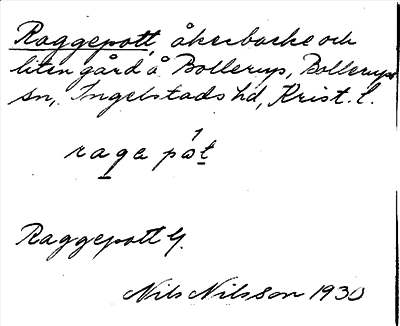 Raggepott, åkerbacke och
liten gård å Bollerup, Bollerups
sn, Ingelstads hd, Krist. l.
raga påt
Raggepott G.
Nils Nilsson 1930